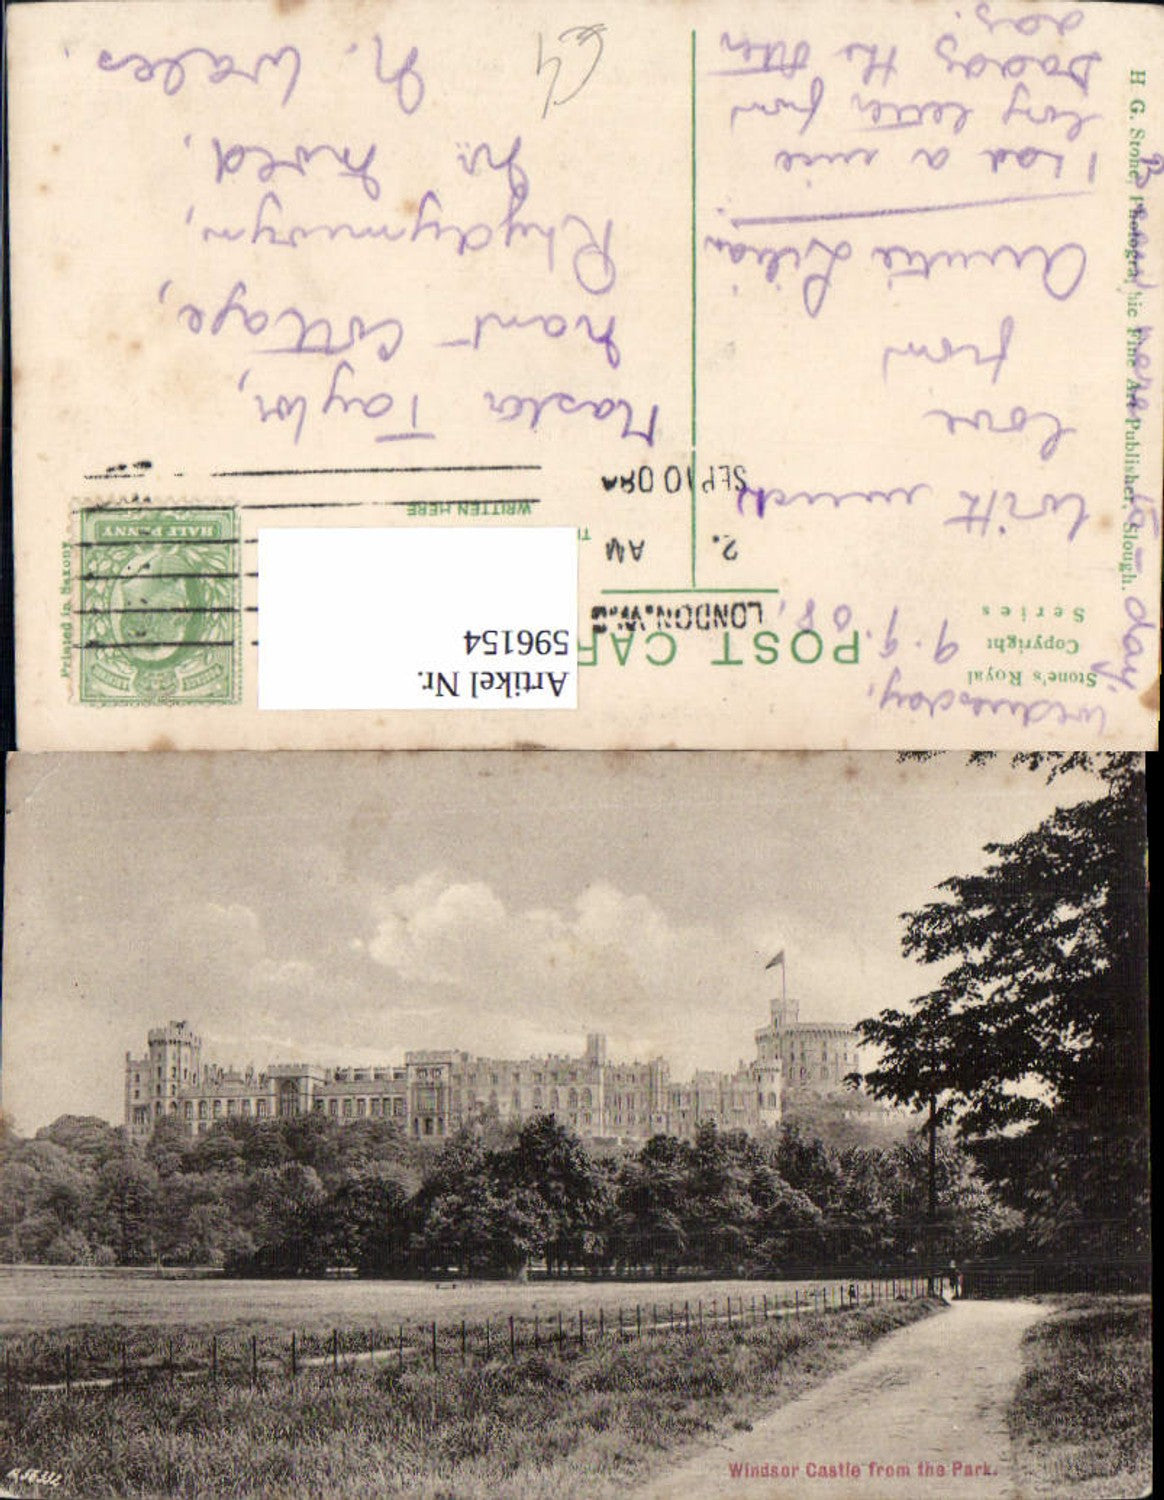 Wednesday,
9.9.08.
With much
love
from
Auntie Lilian.
I had a nice
long letter from
Daddy the other
day.
Stone's Royal
Copyright
Series
POST CAR
WRITTEN HERE
LONDON.W.C
2. AM
SEP 10 08
HALF PENNY
Printed in Saxony
Artikel Nr.
596154
Master Taylor,
Nant Cottage,
Rhydymwyn,
Nr. Mold,
N. Wales.
H. G. Stone, Photographic Fine Art Publisher, Slough.
day.
Windsor Castle from the Park.